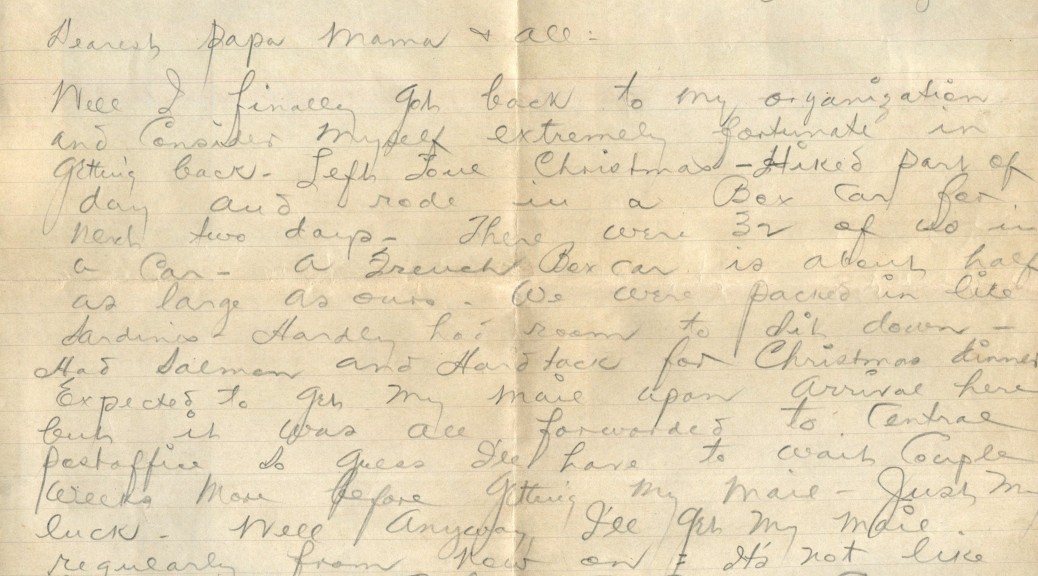 Dearest Papa Mama & all:
Well I finally got back to my organization
and Consider Myself extremely fortunate in
Getting back - Left Christmas - Hiked part of
day and rode in a Box Car for
next two days - There were 32 of us in
a Car - a French Box car is about half
as large as ours - We were packed in like
Sardines - Hardly had room to sit down -
Had Salmon and Hard tack for Christmas dinner
Expected to get my mail upon arrival here
but it was all forwarded to Central
Postoffice So guess I'll have to wait Couple
Weeks More before Getting my mail - Just my
luck - Well Anyway I'll get my mail
regularly from now on It's not like